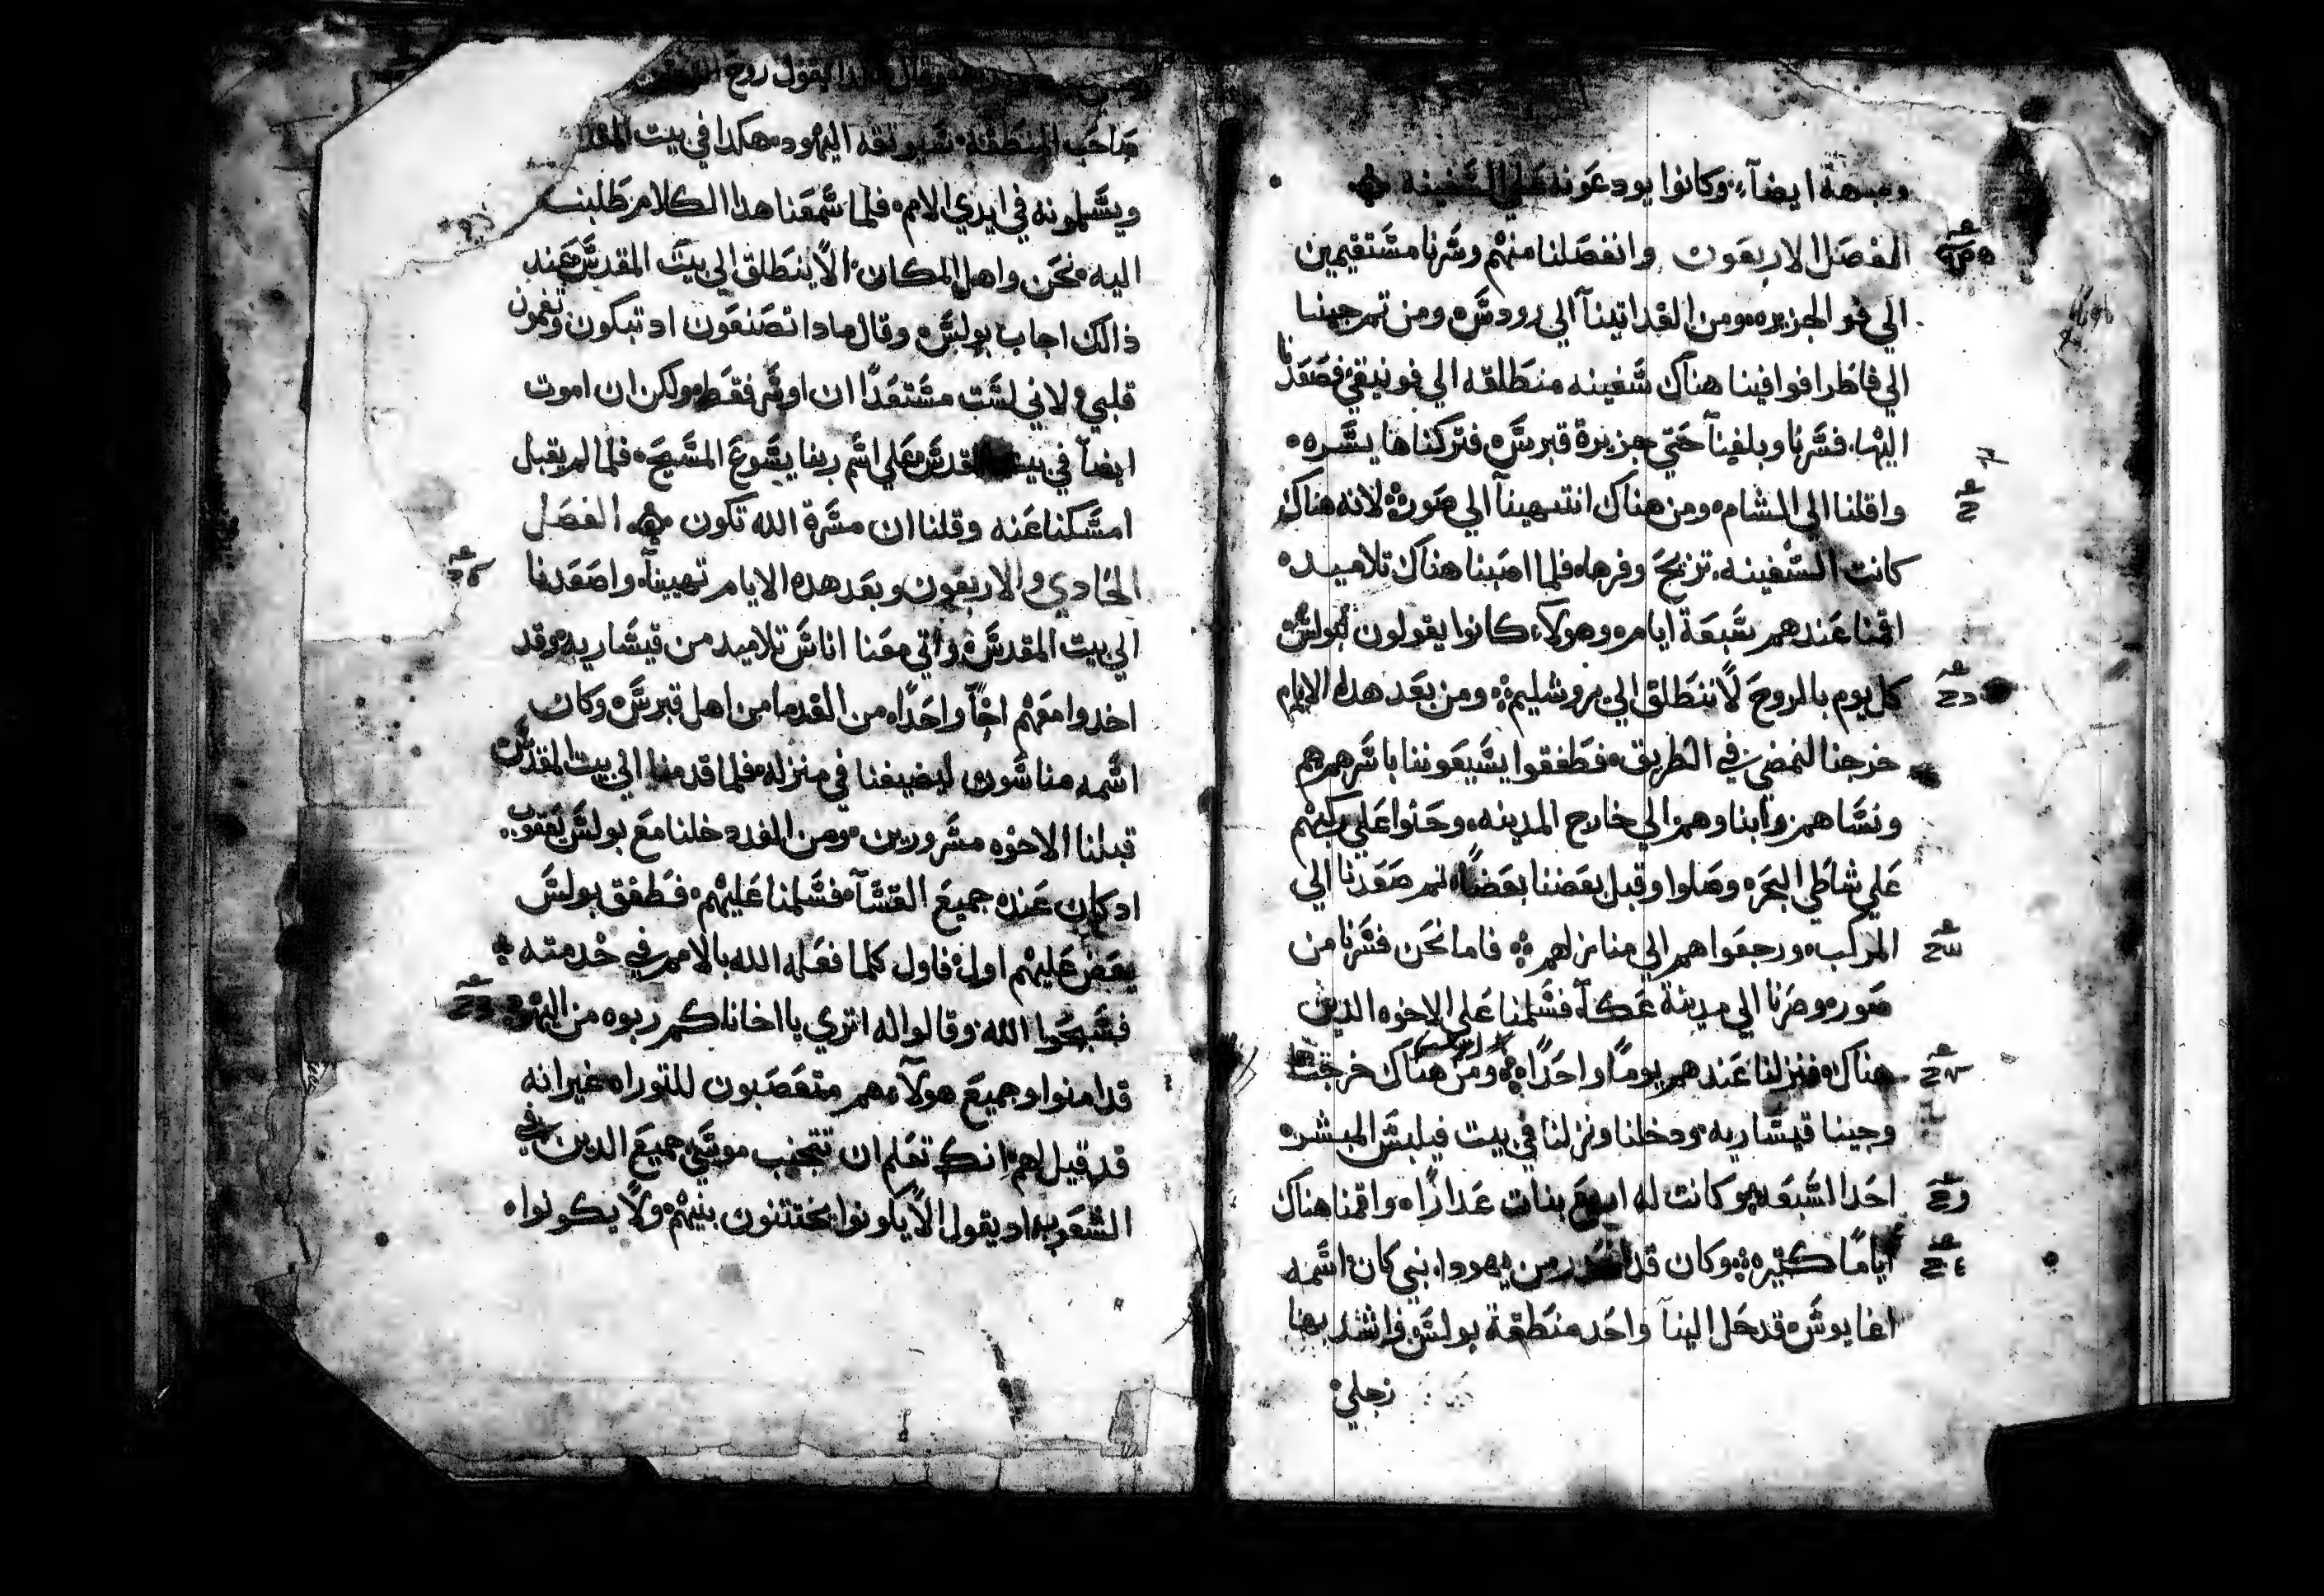 وجهه ايضاً، وكانوا يودعونه علي السفينه
الفصل الاربعون وانفصلنا منهم وسرنا مستقيمين
الي قو الجزيره ومن الغد اتينا الي رودس ومن ثم جينا
الي فاطرا فوافينا هناك سفينه منطلقه الي فونيقي فصعدنا
اليها. فسرنا وبلغنا حتي جزيرة قبرس فتركناها يسره
واقلنا الي الشام ومن هناك انتهينا الي صور لانه هناك
كانت السفينه تزيح وقرها فلما اصبنا هناك تلاميد
اقمنا عندهم سبعة ايام وهولآء كانوا يقولون لبولس
كل يوم بالروح لا تنطلق الي يروشليم ومن بعد هده الايام
خرجنا لنمضي في الطريق فطفقوا يشيعوننا باسرهم هم
ونساهم وابناوهم الي خارج المدينه وحثوا علي ركبهم
علي شاطي البحر وصلوا وقبل بعضنا بعضاً ثم صعدنا الي
المركب ورجعوا هم الي منازلهم فاما نحن فسرنا من
صور وصرنا الي مدينة عكا فسلمنا علي الاخوه الدين
هناك فنزلنا عندهم يوماً واحداً ومن هناك خرجنا
وجينا قيساريه ودخلنا ونزلنا في بيت فيلبس المبشر
احد السبعه وكانت له اربع بنات عدارا واقمنا هناك
اياماً كتيره وكان قد من يهودا نبي كان اسمه
اغابوس قد دخل الينا واخد منطقة بولس فاشد بها
رجلي
يقول روح
صاحب المنطقه سيوثقه اليهود هكدا في بيت المقدس
ويسلمونه في ايدي الامم فلما سمعنا هدا الكلام طلبنا
اليه نحن واهل المكان الا ينطلق الي بيت المقدس عند
ذالك اجاب بولس وقال مادا تصنعون اد تبكون وتغمون
قلبي لاني لست مستعداً ان اوسر فقط ولكن ان اموت
ايضاً في بيت المقدس علي اسم ربنا يسوع المسيح فلما لم يقبل
امسكنا عنه وقلنا ان مسرة الله تكون الفصل
الحادي والاربعون وبعد هده الايام تهيينا واصعدنا
الي بيت المقدس واتي معنا اناس تلاميد من قيساريه وقد
اخدوا معهم اخاً واحداً من القدما من اهل قبرس وكان
اسمه مناسون ليضيفنا في منزله فلما قدمنا الي بيت المقدس
قبلنا الاخوه مسرورين ومن الغد دخلنا مع بولس ليعقوب
اد كان عنده جميع القسآء فسلمنا عليهم فطفق بولس
يقص عليهم اول فاول كلما فعله الله بالامم في خدمته
فسبحوا الله وقالوا له اتري يااخانا كم ربوه من اليهود
قد امنوا وجميع هولآء هم متعصبون للتوراه غير انه
قد قيل لهم انك تعلم ان تتجنب موسي جميع الدين في
الشعوب اد يقول الا يكونوا يختتنون بنيهم ولا يكونوا